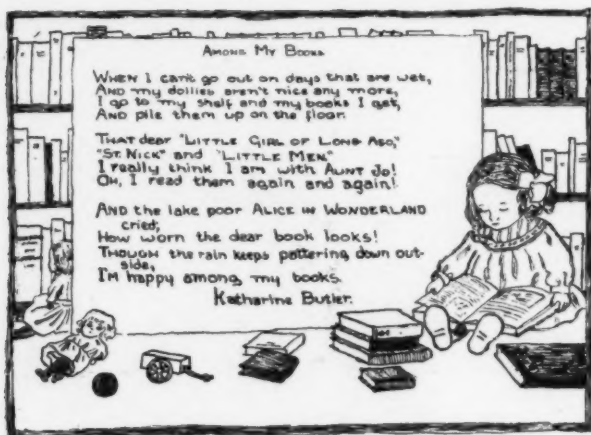 AMONG MY BOOKS
WHEN I can't go out on days that are wet,
AND my dollies aren't nice any more,
I go to my shelf and my books I get,
AND pile them up on the floor.
THAT dear "LITTLE GIRL OF LONG AGO,"
"ST. NICK" and "LITTLE MEN"
I really think I am with AUNT JO!
OH, I read them again and again!
AND the lake poor ALICE IN WONDERLAND
cried;
How worn the dear book looks!
THOUGH the rain keeps pattering down out-
side,
I'M happy among my books.
Katharine Butler.